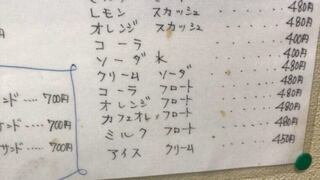 レモン スカッシュ ‥‥ 480円
オレンジ スカッシュ ‥‥ 480円
コーラ ‥‥ 400円
ソーダ水 ‥‥ 400円
クリームソーダ ‥‥ 480円
コーラ フロート ‥‥ 480円
オレンジ フロート ‥‥ 480円
カフェオレ フロート ‥‥ 480円
ミルク フロート ‥‥ 480円
アイス クリーム ‥‥ 450円
ンド ‥‥ 700円
ンド ‥‥ 700円
サンド ‥‥ 700円